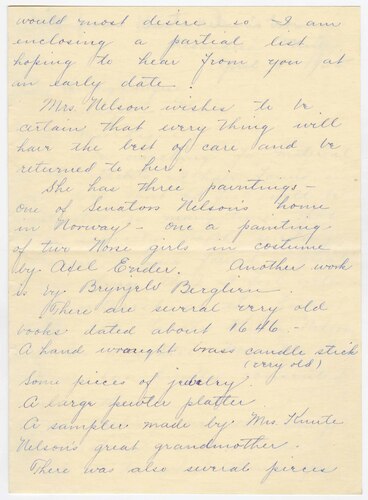 would most desire so I am
enclosing a partial list
hoping to hear from you at
an early date.
Mrs. Nelson wishes to be
certain that every thing will
have the best of care and be
returned to her.
She has three paintings -
one of Senators Nelson's home
in Norway - one a painting
of two Norse girls in costume
by Axel Ender. Another work
is by Brynjels Berglien.
There are several very old
books dated about 1646 -
A hand wrought brass candle stick
(very old)
Some pieces of jewelry.
A large pewter platter
A sampler made by Mrs Knute
Nelson's great grandmother.
There was also several pieces